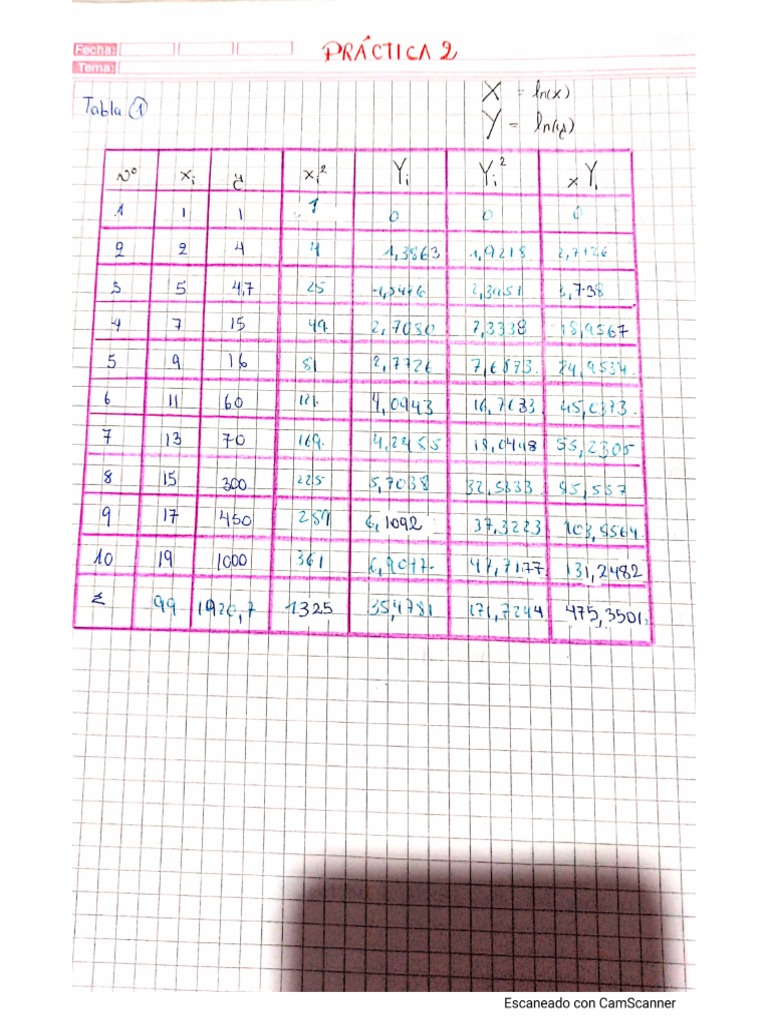 Fecha:
PRÁCTICA 2
Tema:
Tabla 1
X = ln(x)
Y = ln(y)
Nº xi yi xi² Yi Yi² xYi
1 1 1 1 0 0 0
2 2 4 4 1,3863 1,9218 2,7726
3 5 4,7 25
4 7 15 49 2,7080 7,3338 18,9567
5 9 16 81 2,7726 7,6873. 24,9534
6 11 60 121. 4,0943 16,7633 45,0373
7 13 70 169. 4,2485 18,0498 55,2305
8 15 300 225 5,7038 32,5333 85,557
9 17 450 289 6,1092 37,3223 103,8564
10 19 1000 361 6,9077. 47,7177 131,2482
Σ 99 1920,7 1325 35,4781 171,7244 475,3501.
Escaneado con CamScanner